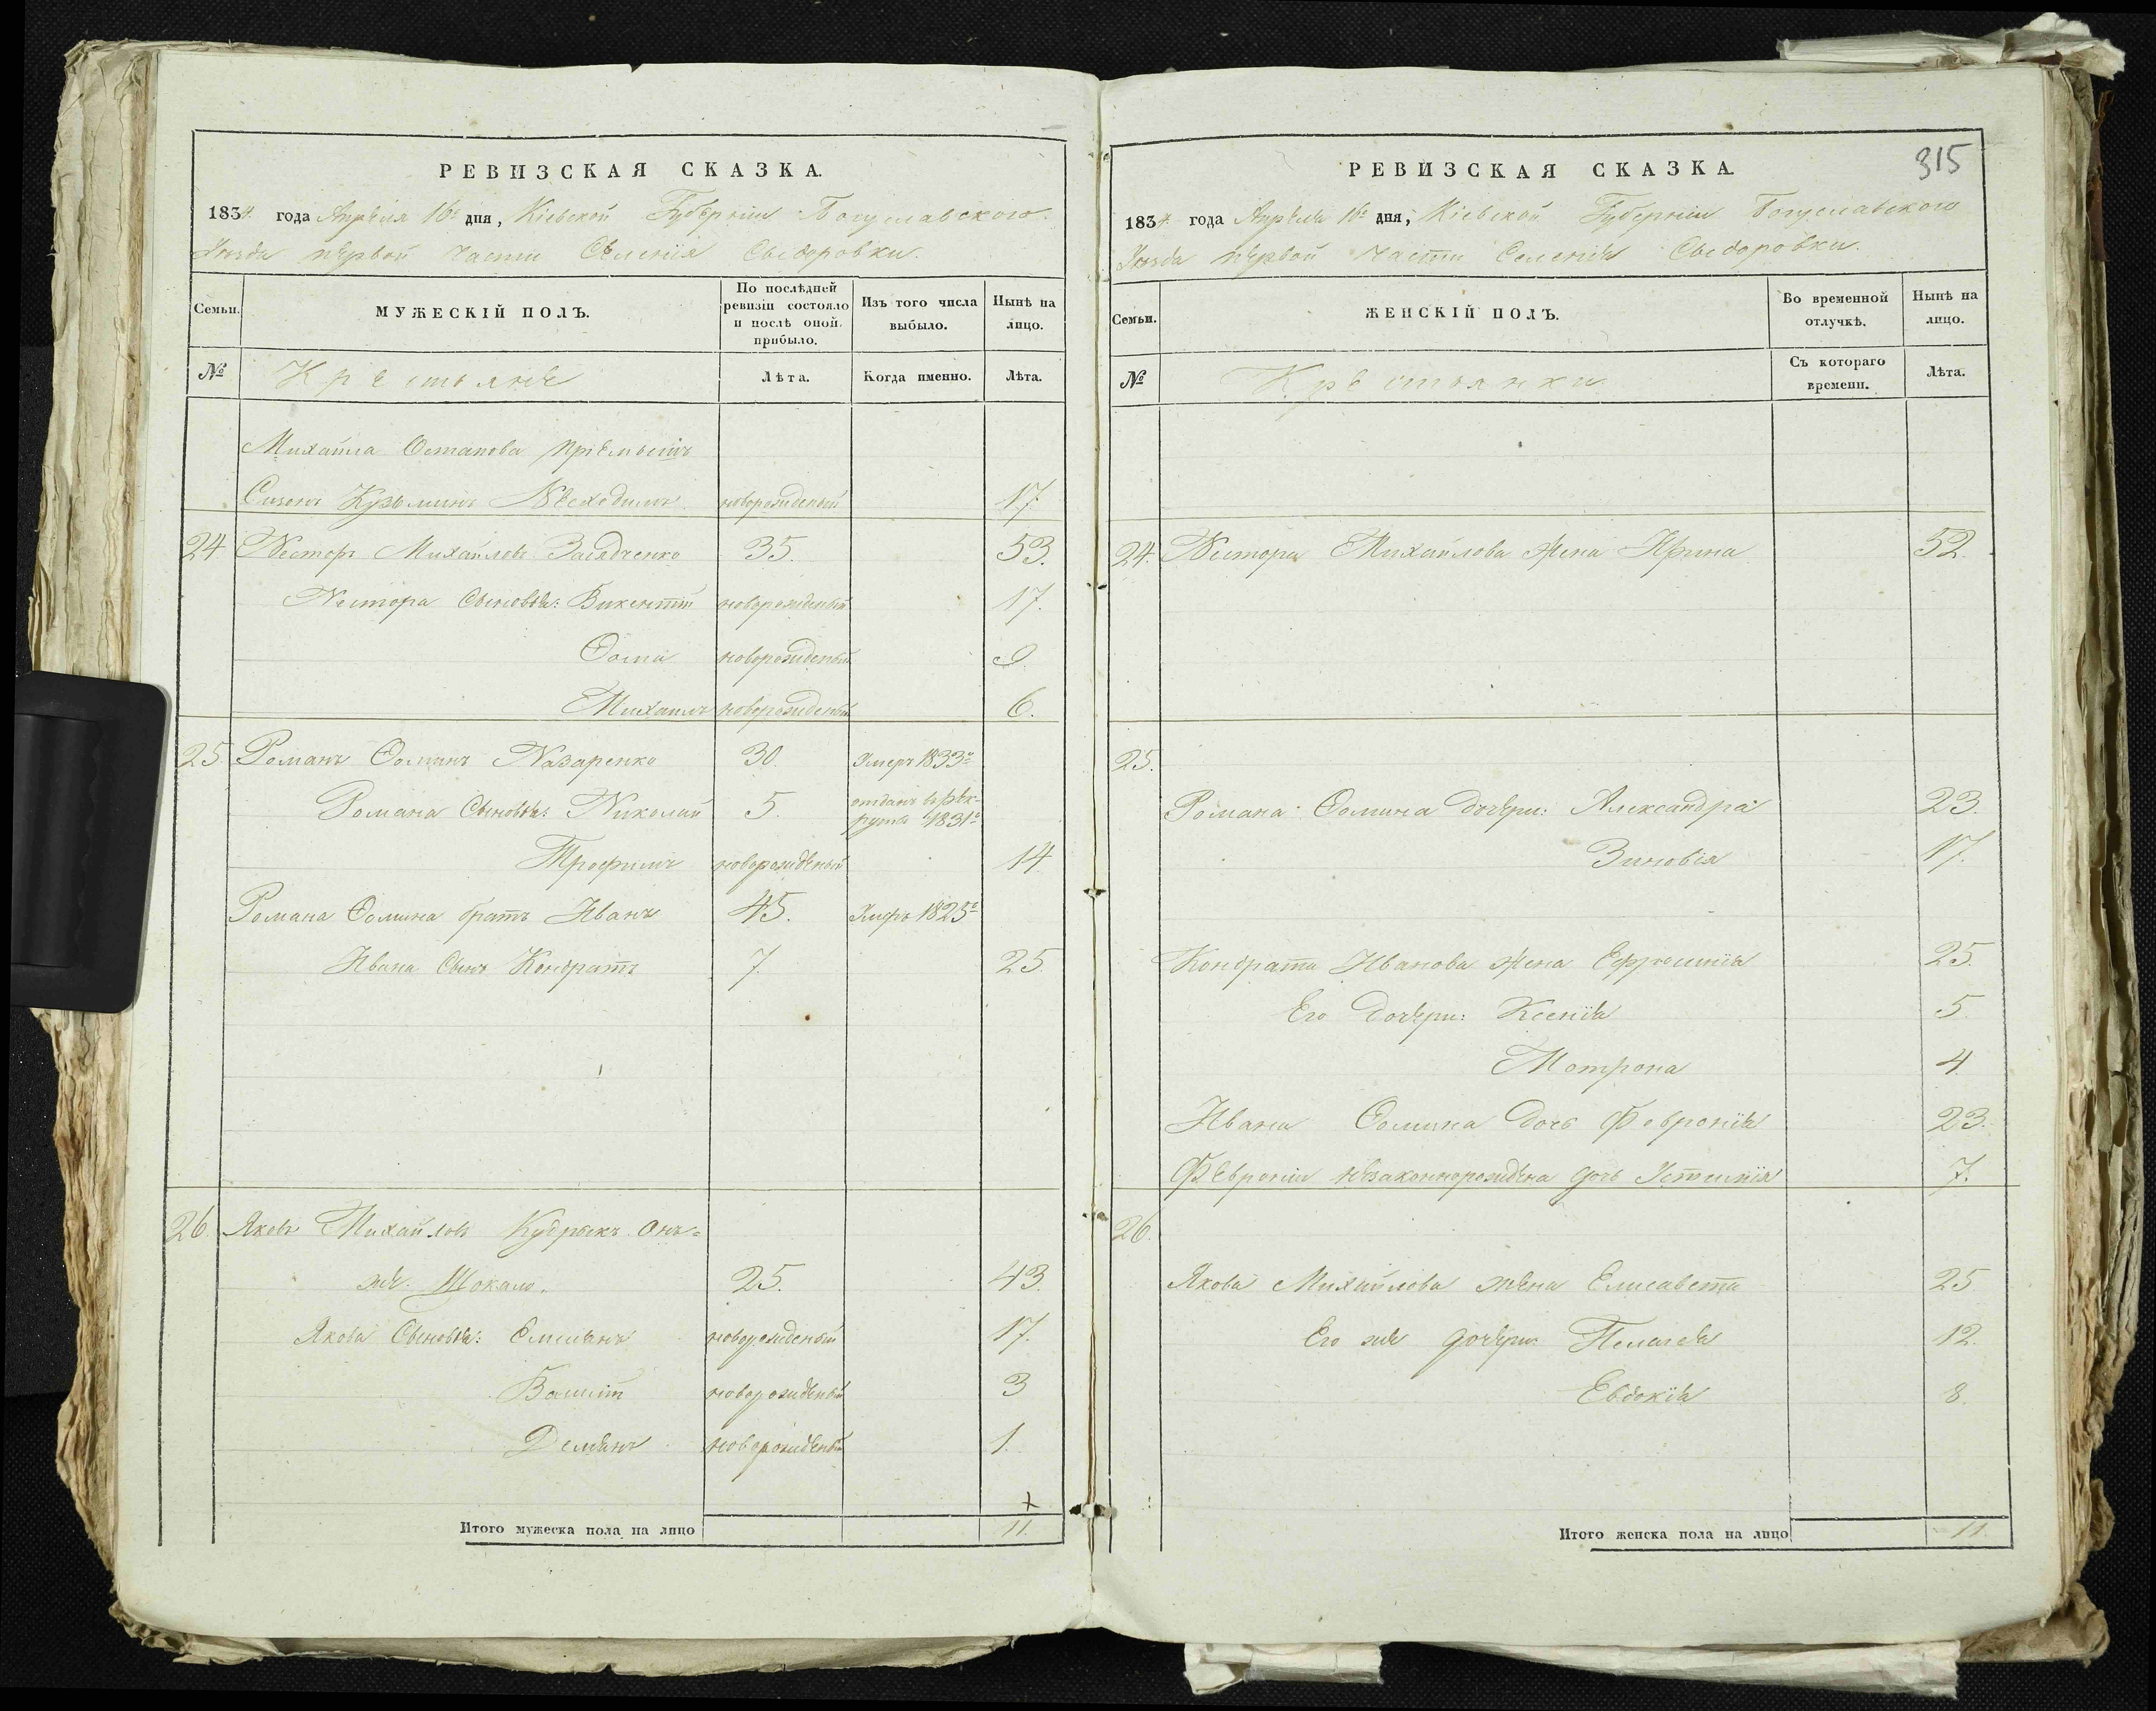 РЕВИЗСКАЯ СКАЗКА.
1834. года Апрѣля 16го дня, Кіевской Губерніи Богуславского
Уѣзда первой части Селенія Сыдоровки.
Семьи.
МУЖЕСКІЙ ПОЛЪ.
По послѣдней ревизіи состояло и послѣ оной прибыло.
Изъ того числа выбыло.
Нынѣ на лицо.
№
Крестьяне
Лѣта.
Когда именно.
Лѣта.
Михайла Остапова пріемышъ
Кузьминъ новорожденый 17.
24 Несторъ Михайловъ Засядченко 35. 53.
Нестора Сыновья: Викентій новорожденый 17.
Ѳома новорожденый 9.
Михаилъ новорожденый 6.
25. Романъ Ѳоминъ Назаренко 30. Умеръ 1833го
Романа Сыновья: Николай 5. отданъ въ рек-
руты 1831го
Трофимъ новорожденый 14.
Романа Ѳомина братъ Иванъ 45. Умеръ 1825го
Ивана Сынъ Кондратъ 7. 25.
26. Яковъ Михайловъ Кудрыкъ онъ=
же Шокало. 25. 43.
Якова Сыновья: Емельянъ новорожденый 17.
новорожденый 3
Демьянъ новорожденый 1.
Итого мужеска пола на лицо 11.
315
РЕВИЗСКАЯ СКАЗКА.
1834. года Апрѣля 16го дня, Кіевской Губерніи Богуславского
Уѣзда первой части Селенія Сыдоровки.
Семьи.
ЖЕНСКІЙ ПОЛЪ.
Во временной отлучкѣ.
Нынѣ на лицо.
№
Крестьянки
Съ котораго времени.
Лѣта.
24. Нестора Михайлова жена Ирина 52.
25.
Романа Ѳомина дочери: Александра 23.
Зиновія 17.
Кондрата Иванова жена Ефросинія 25.
Его дочери: Ксенія 5
Мотрона 4
Ивана Ѳомина дочь Февронія 23.
Февроніи незаконнорождена дочь Устинія 7.
26.
Якова Михайлова жена Елисавета 25
Его же дочери: Пелагея 12.
Евдокія 8.
Итого женска пола на лицо 11.